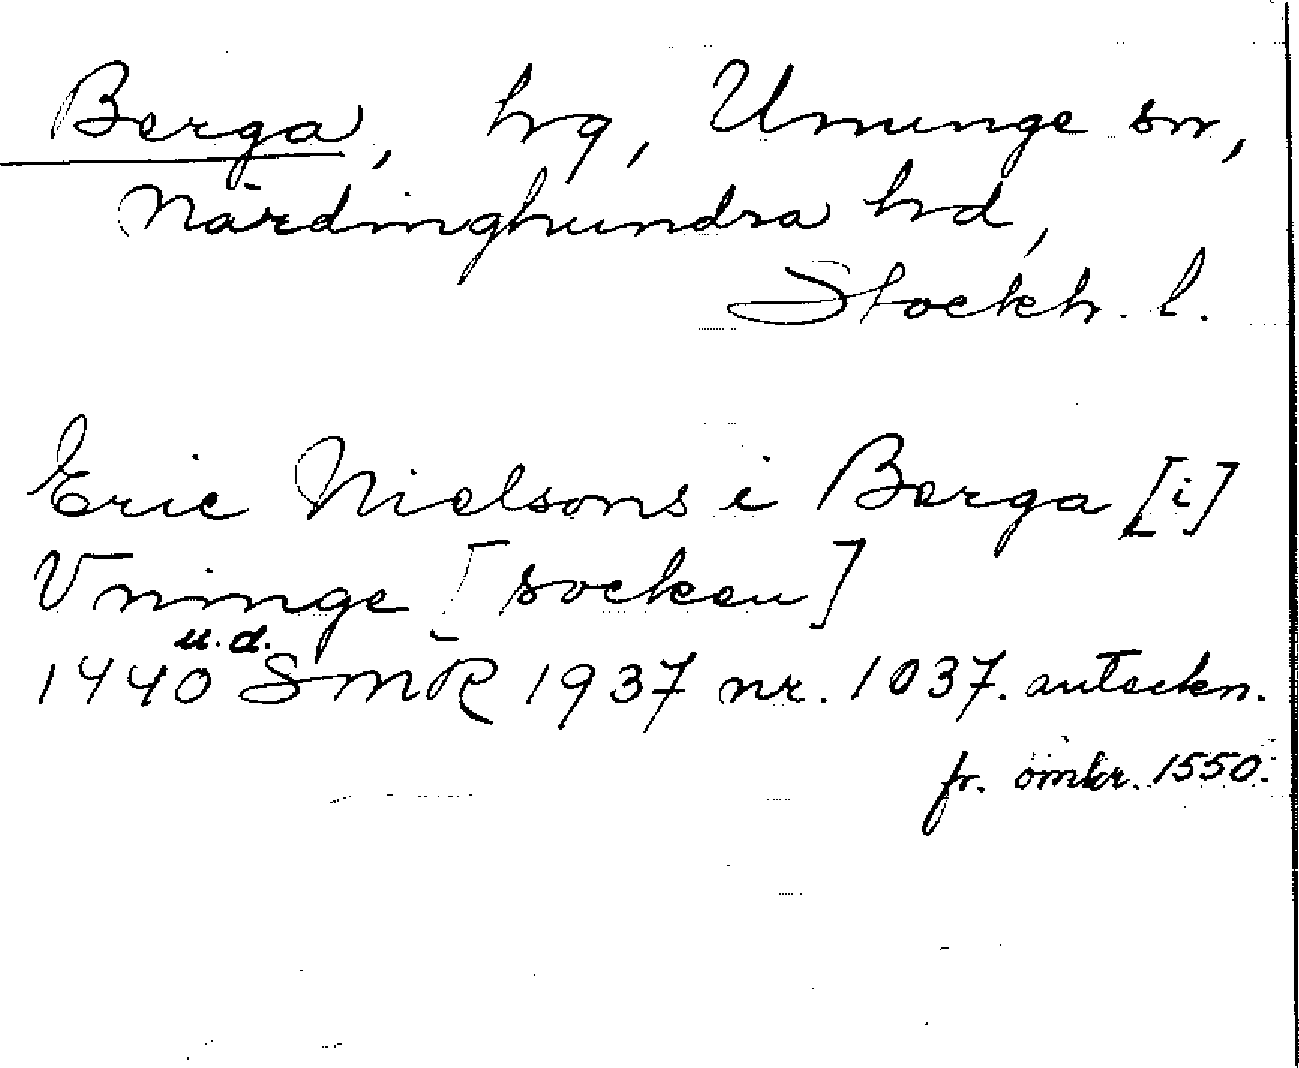 Berga, hg, Ununge sn,
Närdinghundra hd,
Stockh. l.
Eric Nielsons i Berga [i]
Vninge [socken]
u.d.
1440 SMR 1937 nr. 1037. anteckn.
fr. omkr. 1550.